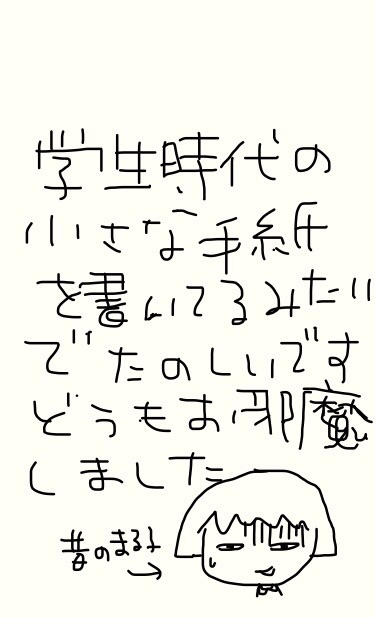 学生時代の
小さな手紙
を書いてるみたい
でたのしいです
どうもお邪魔
しました
昔のまる子